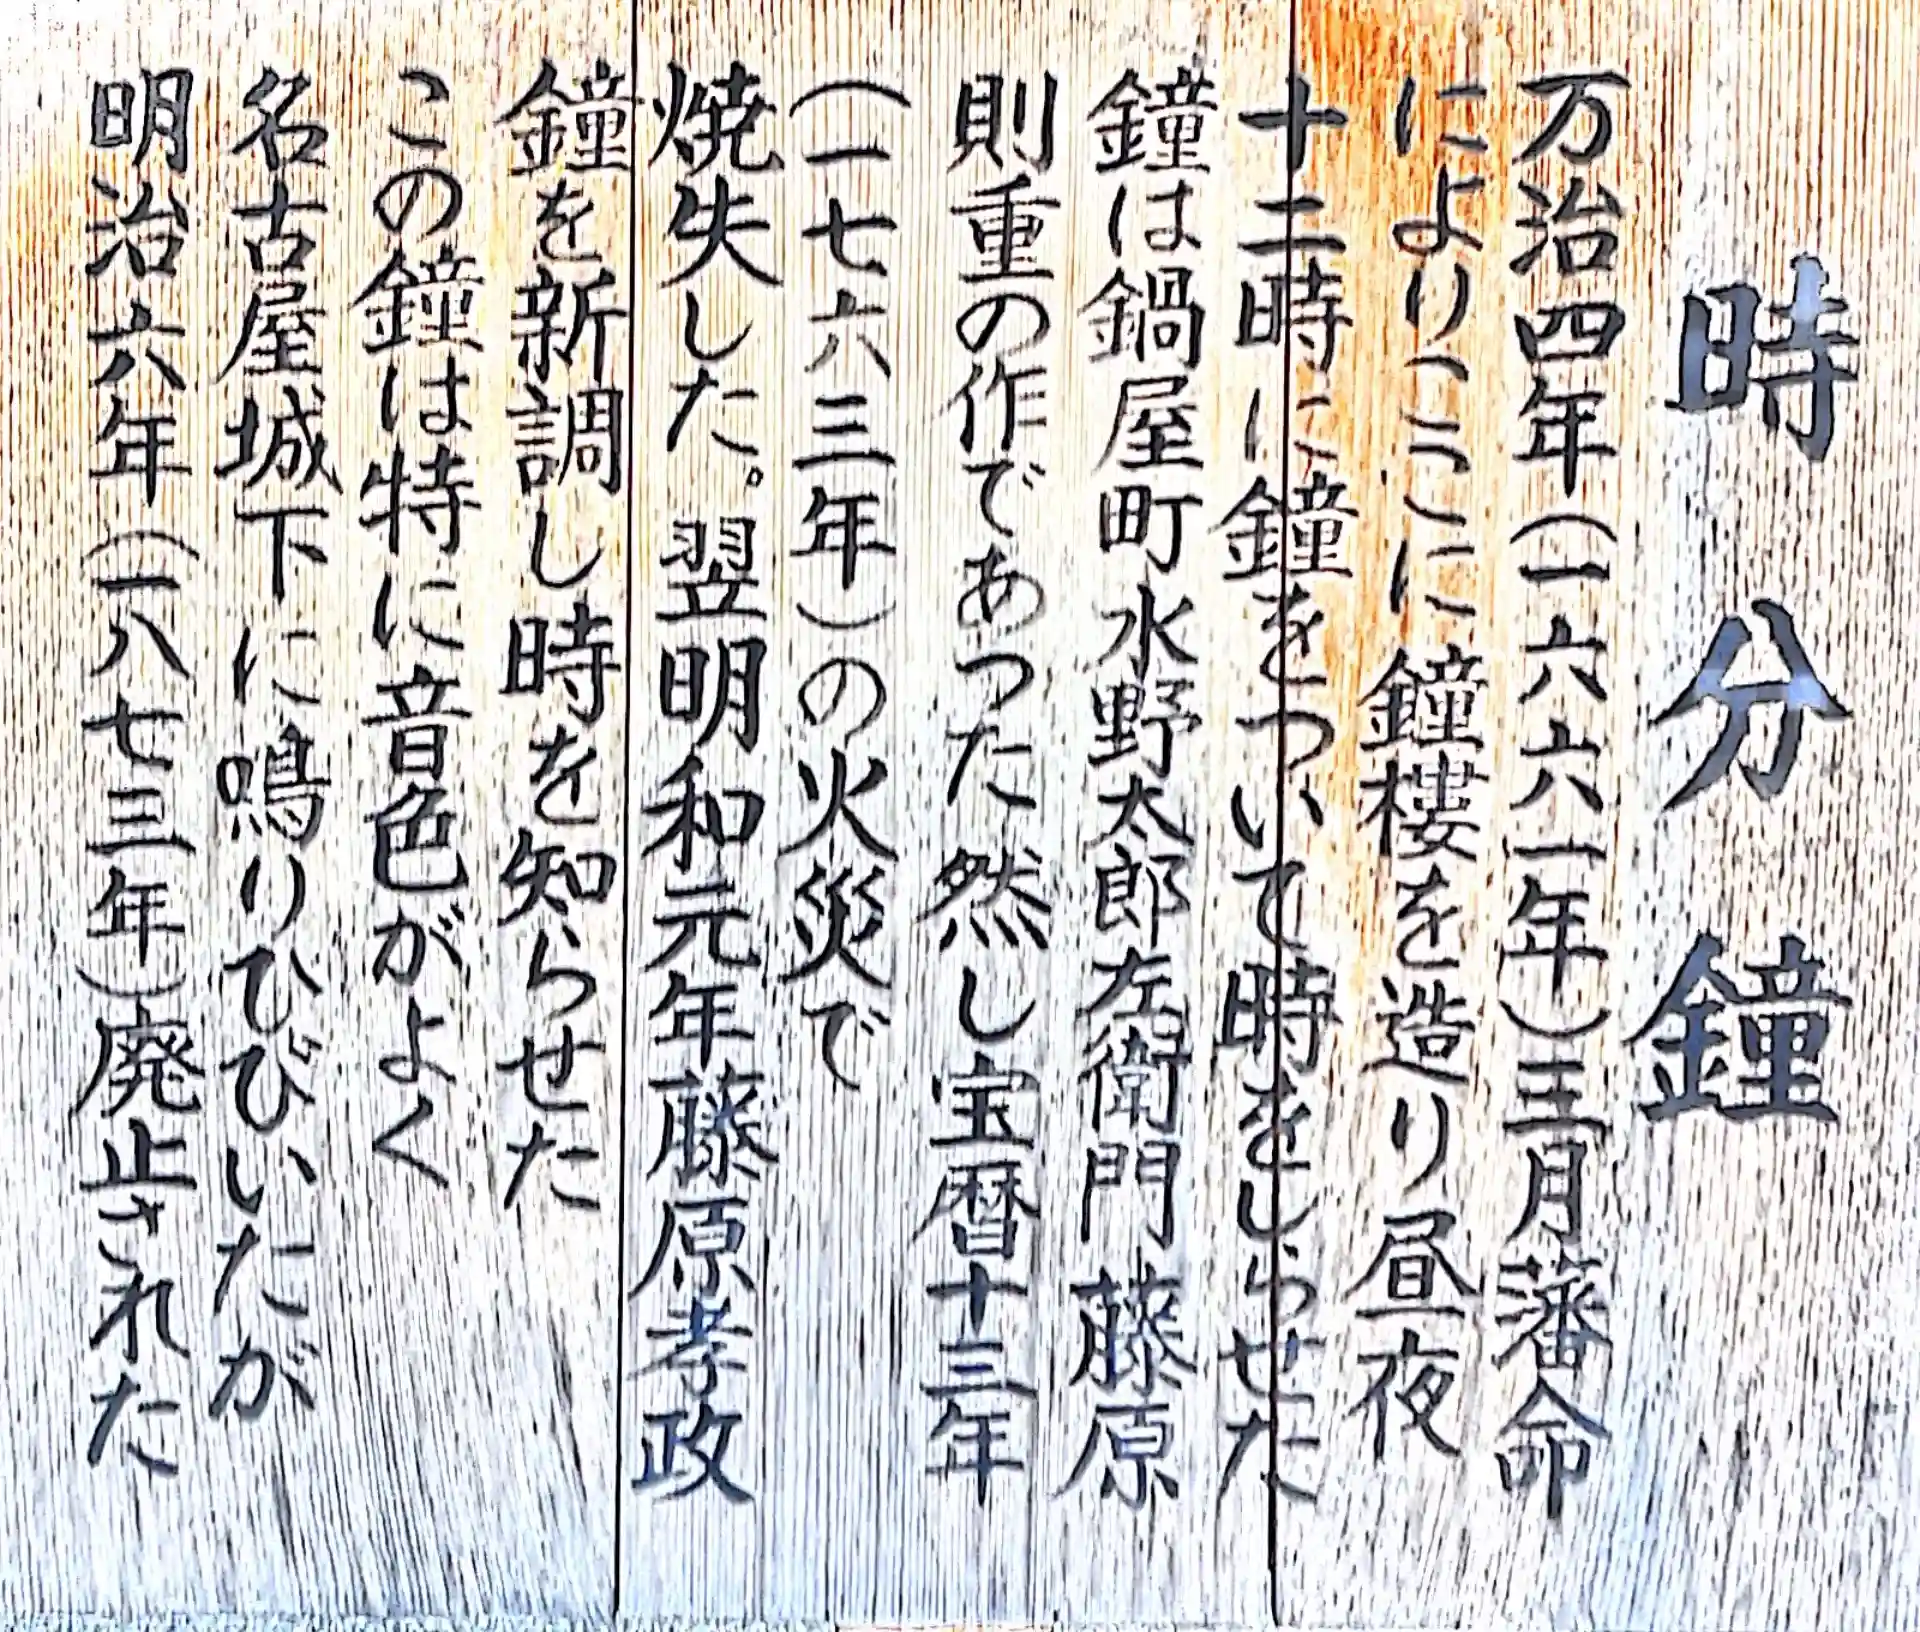 時分鐘
万治四年(一六六一年)三月藩命
によりここに鐘樓を造り昼夜
十二時に鐘をついて時をしらせた
鐘は鍋屋町水野太郎左衛門藤原
則重の作であつた然し宝暦十三年
(一七六三年)の火災で
焼失した。翌明和元年藤原孝政
鐘を新調し時を知らせた
この鐘は特に音色がよく
名古屋城下に鳴りひびいたが
明治六年(一八七三年)廃止された